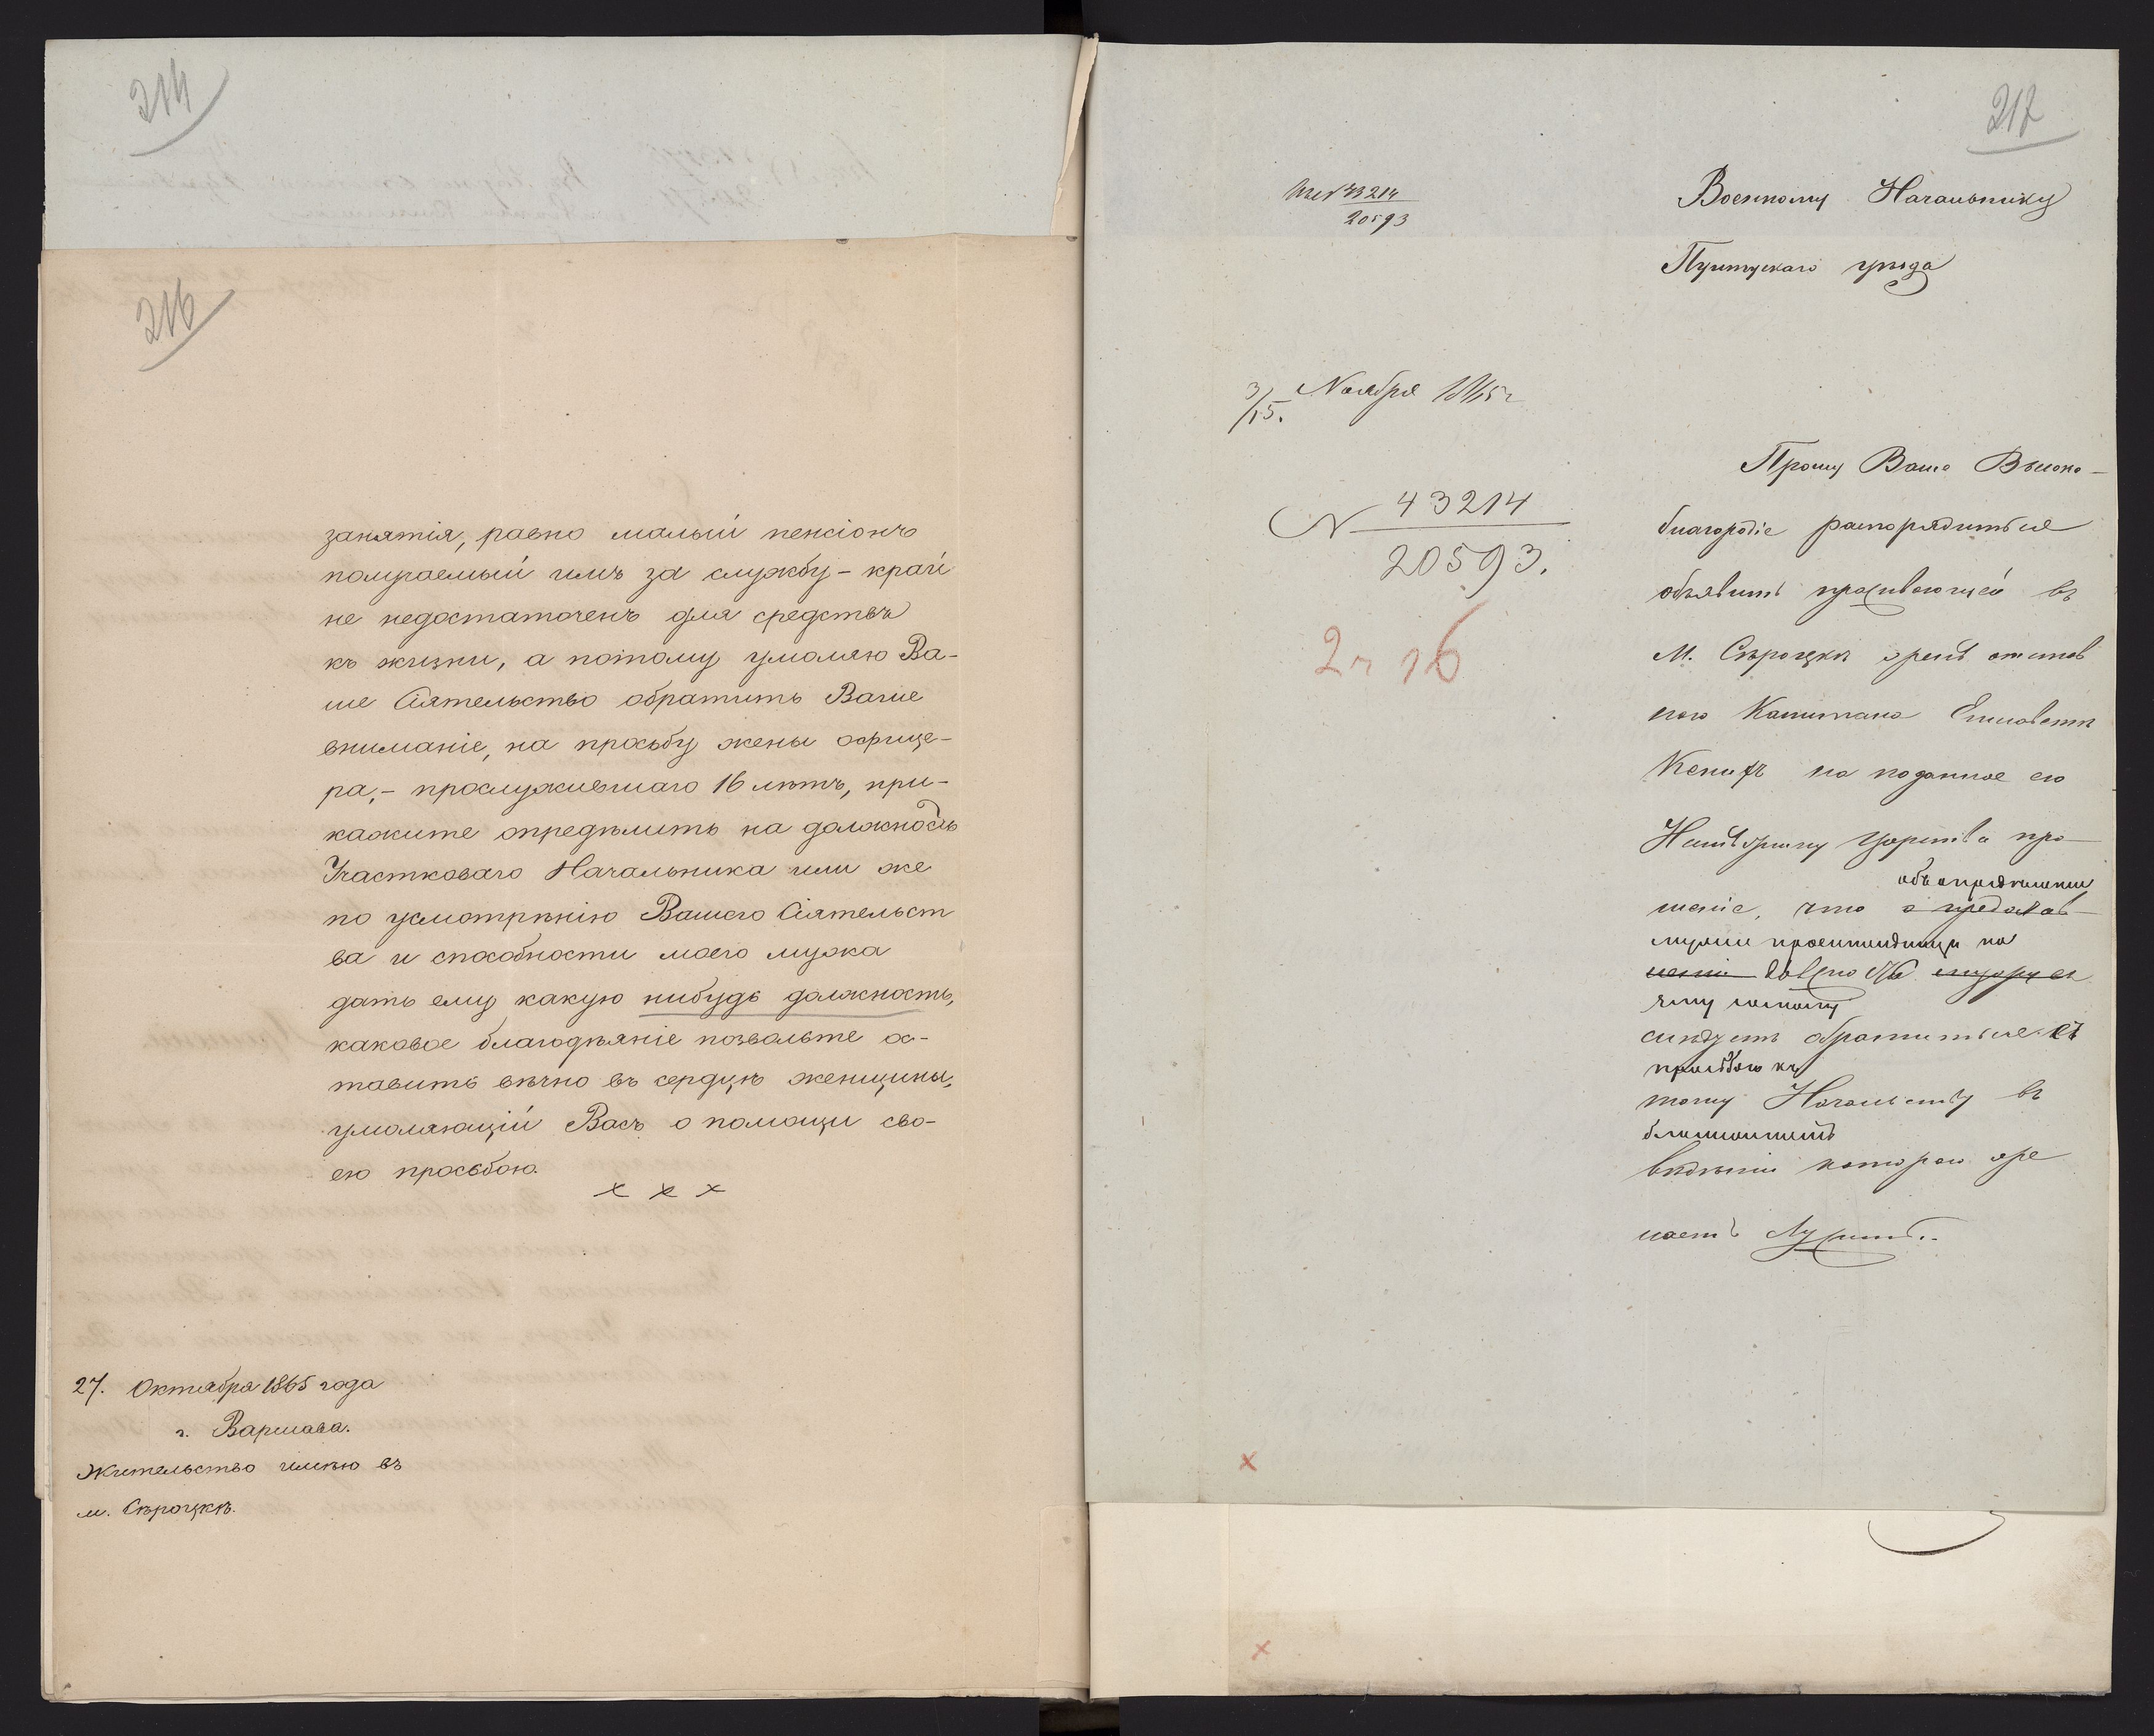 214
216
занятія, равно малый пенсіонъ
получаемый имъ за службу – край
не недостаточенъ для средствъ
къ жизни, а потому умоляю Ва-
ше Сіятельство обратить Ваше
вниманіе, на просьбу жены офице-
ра,– прослужившаго 16 лѣтъ, при-
кажите опредѣлить на должность
Участковаго Начальника или же
по усмотрѣнію Вашего Сіятельст
ва и способности моего мужа
дать ему какую нибудь должность,
каковое благодѣяніе позвольте ос-
тавить вѣчно въ сердцѣ женщины,
умоляющій Васъ о помощи сво-
ею просьбою.
х х х
27. Октября 1865 года
г. Варшава.
Жительство имѣю въ
м. Сѣроцкѣ.
217
43214
20593
Военному Начальнику
Пултускаго уѣзда
3/15. Ноября 1865 г
N 43214
20593.
Прошу Ваше Высоко-
благородіе распорядиться
объявить проживающей въ
М. Сѣроцкѣ женѣ отстав
наго Капитана Елисаветѣ
на поданное ею
Намѣстнику Царства про
объ опредѣленіи
шеніе, что о предостав
мужа просительницы на
леніи должности мужу ея
слѣдуетъ обратиться съ
просьбою къ
тому Начальству въ
вѣдѣніи котораго же
лаетъ служить.